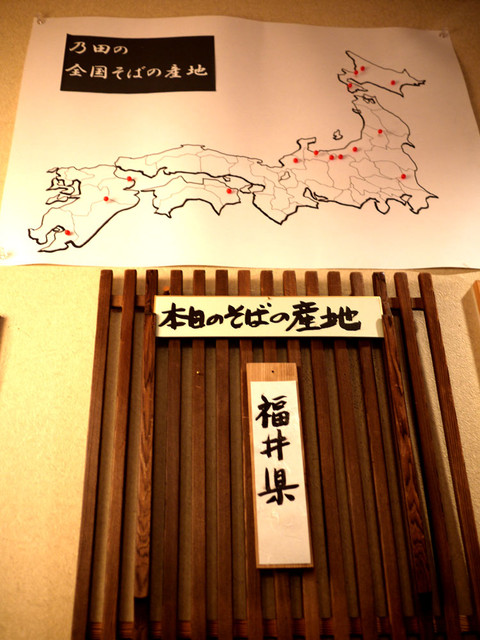 乃田の
全国そばの産地
本日のそばの産地
福井県